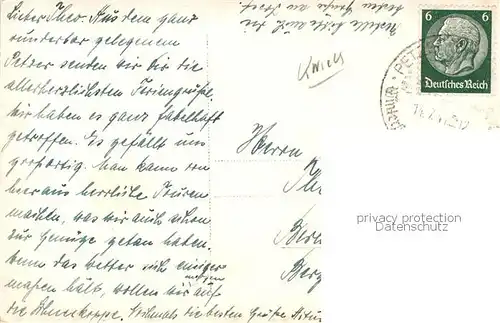 Lieber Theo. Aus dem ganz
wunderbar gelegenem
Petzer senden wir Dir die
allerherzlichsten Feriengrüße.
Wir haben es ganz fabelhaft
getroffen. Es gefällt uns
großartig. Man kann von
hier aus herrliche Touren
machen, was wir auch schon
zur Genüge getan haben.
Wenn das Wetter sich einiger
maßen hält, wollen wir
morgen
auf
die Schneekoppe. Nochmals die besten Grüße
Bestelle bitte auch
Grüße
6 6
Deutsches Reich
PETZER
Herrn
Berl
Berg
privacy protection
Datenschutz